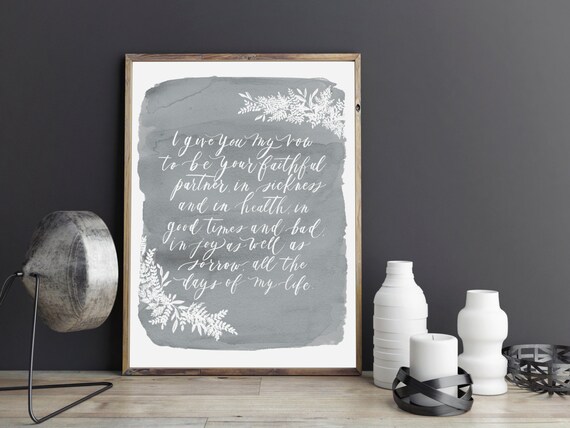 I give you my vow
to be your faithful
partner, in sickness
and in health, in
good times and bad,
in joy as well as
sorrow all the
days of my life.